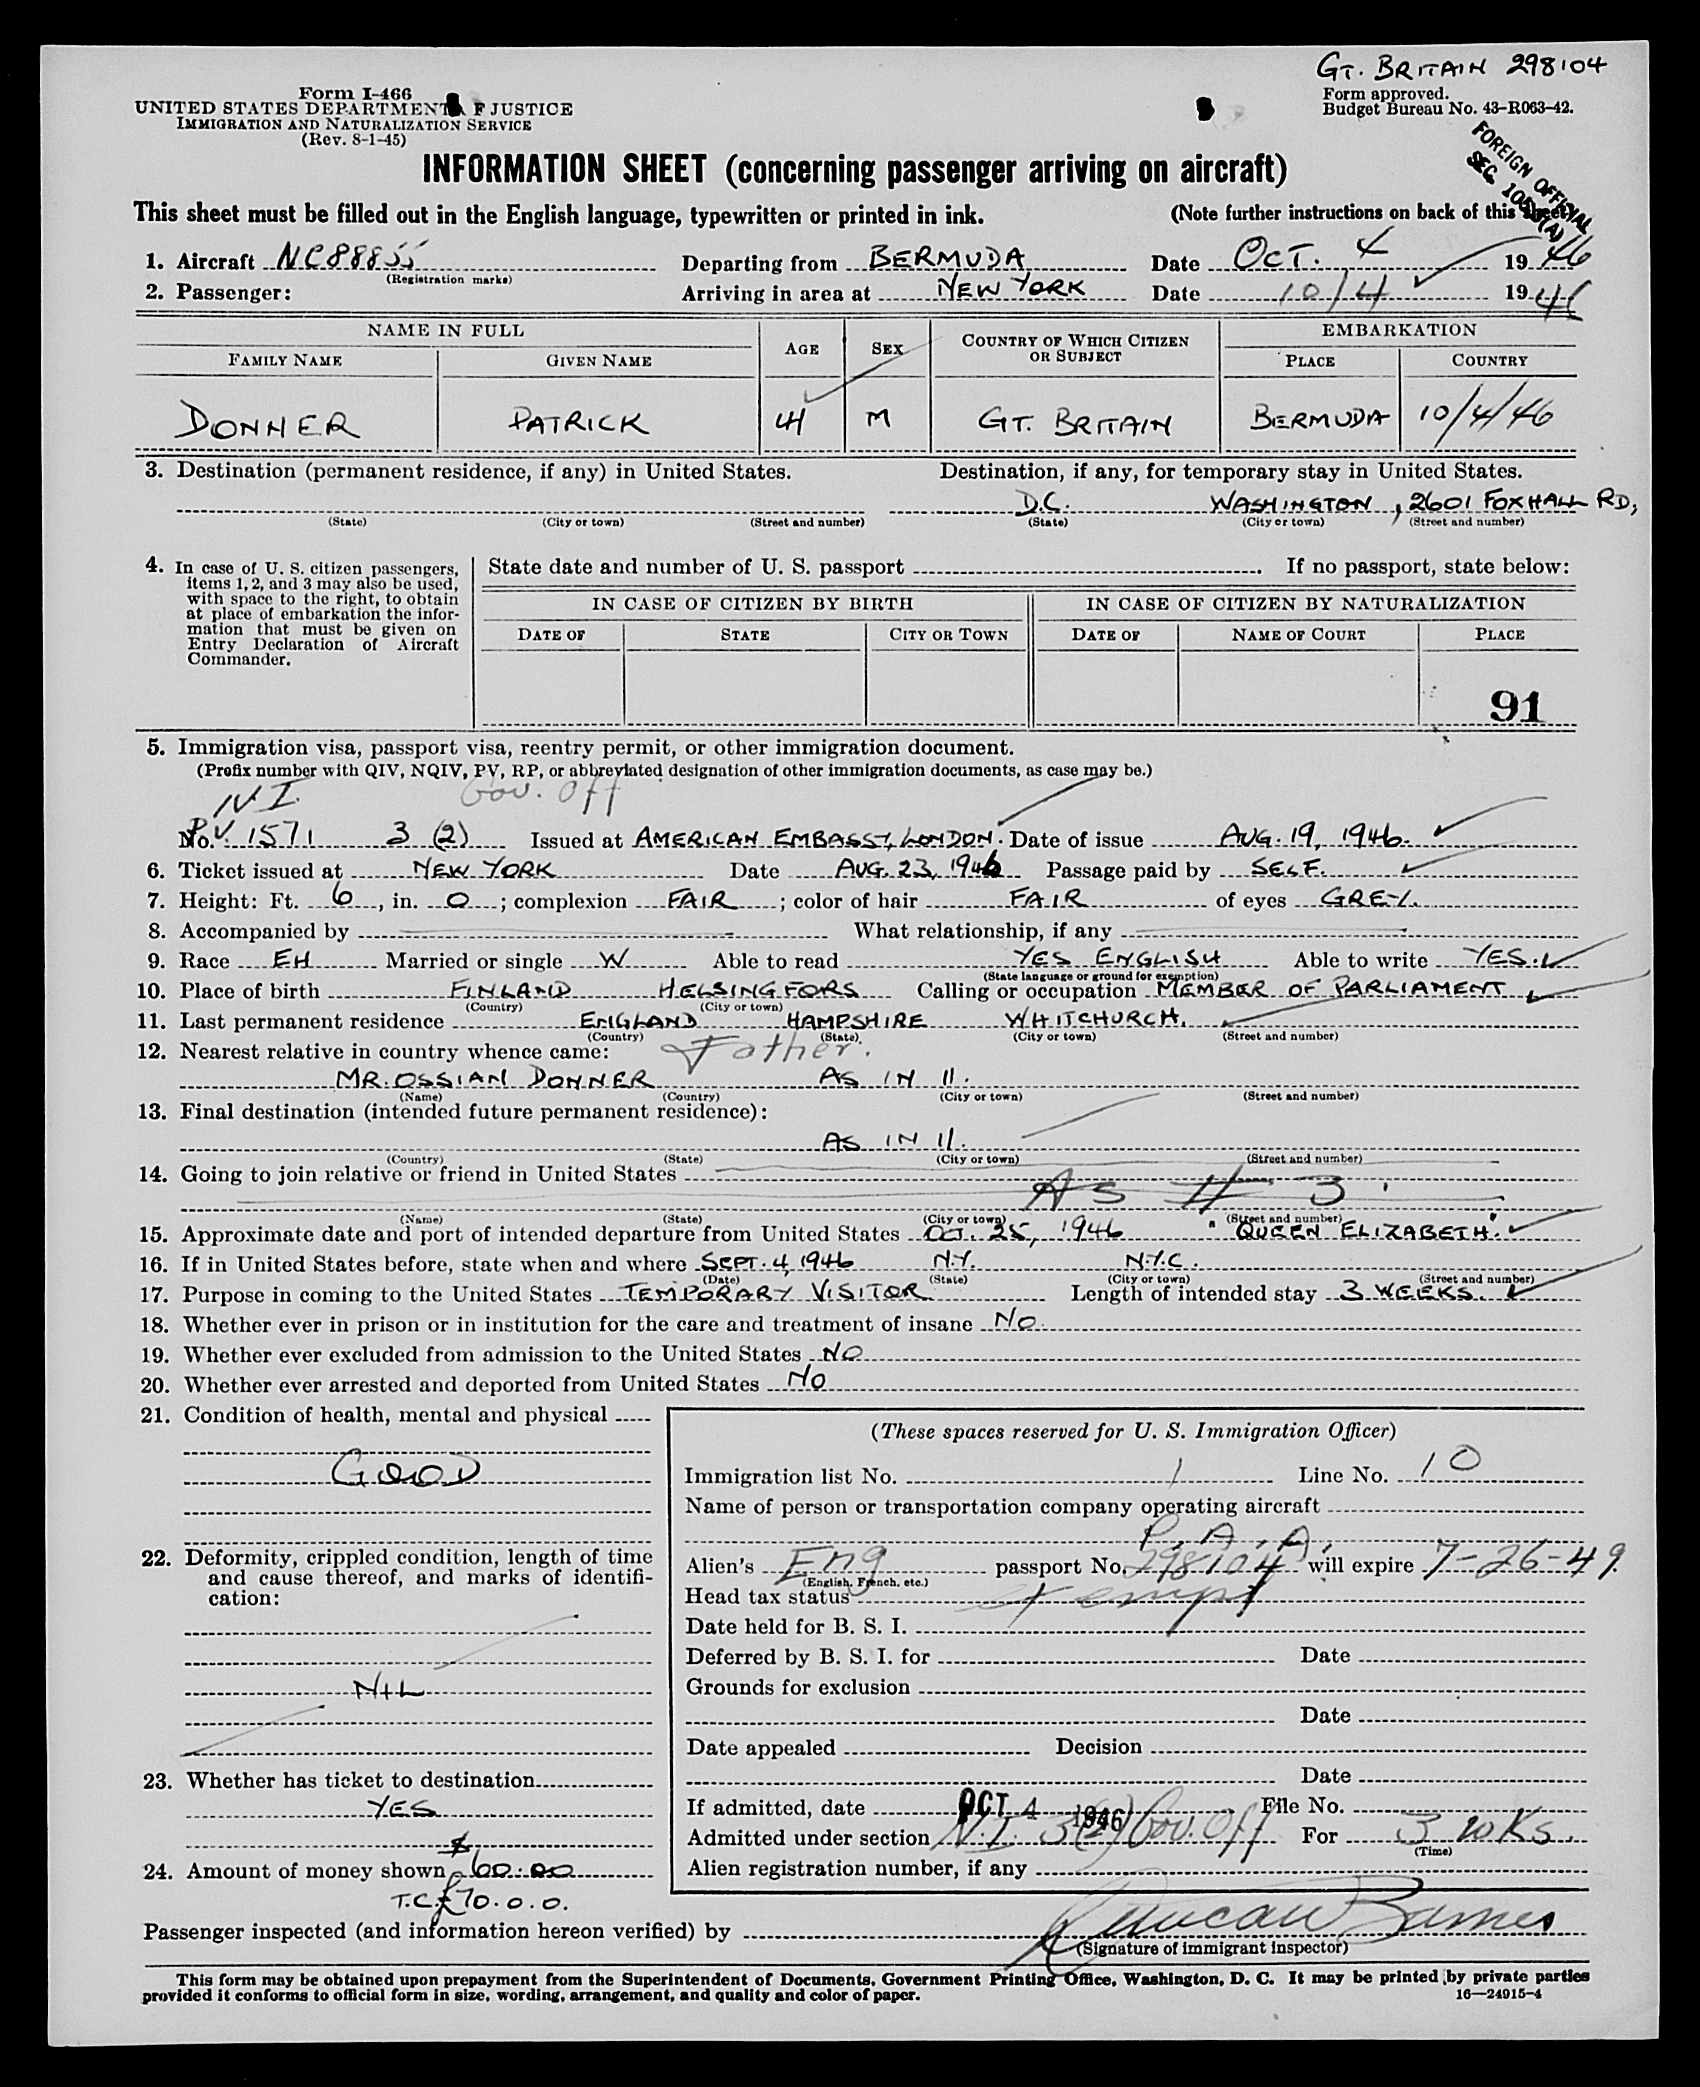 GT. BRITAIN 298104
Form I-466
UNITED STATES DEPARTMENT OF JUSTICE
IMMIGRATION AND NATURALIZATION SERVICE
(Rev. 8-1-45)
Form approved.
Budget Bureau No. 43-R063-42.
FOREIGN OFFICIAL
SEC.
INFORMATION SHEET (concerning passenger arriving on aircraft)
This sheet must be filled out in the English language, typewritten or printed in ink. (Note further instructions on back of this sheet)
1. Aircraft NC88855 Departing from BERMUDA Date OCT. 4 1946
(Registration marks)
2. Passenger: Arriving in area at NEW YORK Date 10/4 1946
NAME IN FULL AGE SEX COUNTRY OF WHICH CITIZEN OR SUBJECT EMBARKATION
FAMILY NAME GIVEN NAME PLACE COUNTRY
DONNER PATRICK 41 M GT. BRITAIN BERMUDA 10/4/46
3. Destination (permanent residence, if any) in United States. Destination, if any, for temporary stay in United States.
D.C. WASHINGTON, 2601 FOXHALL RD,
(State) (City or town) (Street and number) (State) (City or town) (Street and number)
4. In case of U. S. citizen passengers,
items 1, 2, and 3 may also be used,
with space to the right, to obtain
at place of embarkation the infor-
mation that must be given on
Entry Declaration of Aircraft
Commander.
State date and number of U. S. passport If no passport, state below:
IN CASE OF CITIZEN BY BIRTH IN CASE OF CITIZEN BY NATURALIZATION
DATE OF STATE CITY OR TOWN DATE OF NAME OF COURT PLACE
91
5. Immigration visa, passport visa, reentry permit, or other immigration document.
(Prefix number with QIV, NQIV, PV, RP, or abbreviated designation of other immigration documents, as case may be.)
N.I. Gov. Off
No. P.V. 1571 3 (2) Issued at AMERICAN EMBASSY, LONDON. Date of issue AUG. 19, 1946.
6. Ticket issued at NEW YORK Date AUG. 23, 1946 Passage paid by SELF.
7. Height: Ft. 6, in. 0; complexion FAIR; color of hair FAIR of eyes GREY.
8. Accompanied by What relationship, if any
9. Race EH Married or single W Able to read YES ENGLISH Able to write YES.
(State language or ground for exemption)
10. Place of birth FINLAND HELSINGFORS Calling or occupation MEMBER OF PARLIAMENT
(Country) (City or town)
11. Last permanent residence ENGLAND HAMPSHIRE WHITCHURCH.
(Country) (State) (City or town) (Street and number)
12. Nearest relative in country whence came: Father.
MR. OSSIAN DONNER AS IN 11.
(Name) (Country) (City or town) (Street and number)
13. Final destination (intended future permanent residence):
AS IN 11.
(Country) (State) (City or town) (Street and number)
14. Going to join relative or friend in United States
As # 3.
(Name) (State) (City or town) (Street and number)
15. Approximate date and port of intended departure from United States OCT. 25, 1946 "QUEEN ELIZABETH".
16. If in United States before, state when and where SEPT. 4, 1946 N.Y. N.Y.C.
(Date) (State) (City or town) (Street and number)
17. Purpose in coming to the United States TEMPORARY VISITOR. Length of intended stay 3 WEEKS.
18. Whether ever in prison or in institution for the care and treatment of insane NO.
19. Whether ever excluded from admission to the United States NO
20. Whether ever arrested and deported from United States NO
21. Condition of health, mental and physical
GOOD
22. Deformity, crippled condition, length of time
and cause thereof, and marks of identifi-
cation:
NIL
23. Whether has ticket to destination
YES
24. Amount of money shown $60.00
T.C. £70.0.0.
(These spaces reserved for U. S. Immigration Officer)
Immigration list No. 1 Line No. 10
Name of person or transportation company operating aircraft
P.A.A.
Alien's Eng passport No. 298104 will expire 7-26-49.
(English, French, etc.)
Head tax status exempt
Date held for B. S. I.
Deferred by B. S. I. for Date
Grounds for exclusion
Date
Date appealed Decision
Date
If admitted, date OCT 4 1946 File No.
Admitted under section N.I. 3(2) Gov. Off For 3 wks.
(Time)
Alien registration number, if any
Passenger inspected (and information hereon verified) by
(Signature of immigrant inspector)
This form may be obtained upon prepayment from the Superintendent of Documents, Government Printing Office, Washington, D. C. It may be printed by private parties
provided it conforms to official form in size, wording, arrangement, and quality and color of paper.
16—24915-4